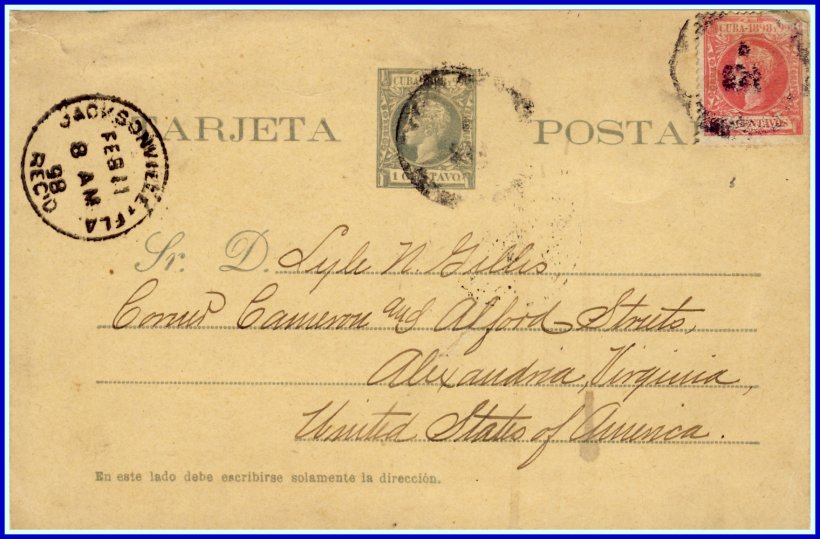 CUBA·1898·99
CENTAVOS
CUBA 1898
TARJETA POSTA
1 CENTAVO
JACKSONVILLE, FLA
FEB 11
8 AM
98
REC'D
Sr. D. Lyle N. Gillis,
Corner Cameron and Alford Streets,
Alexandria, Virginia,
United States of America.
En este lado debe escribirse solamente la dirección.